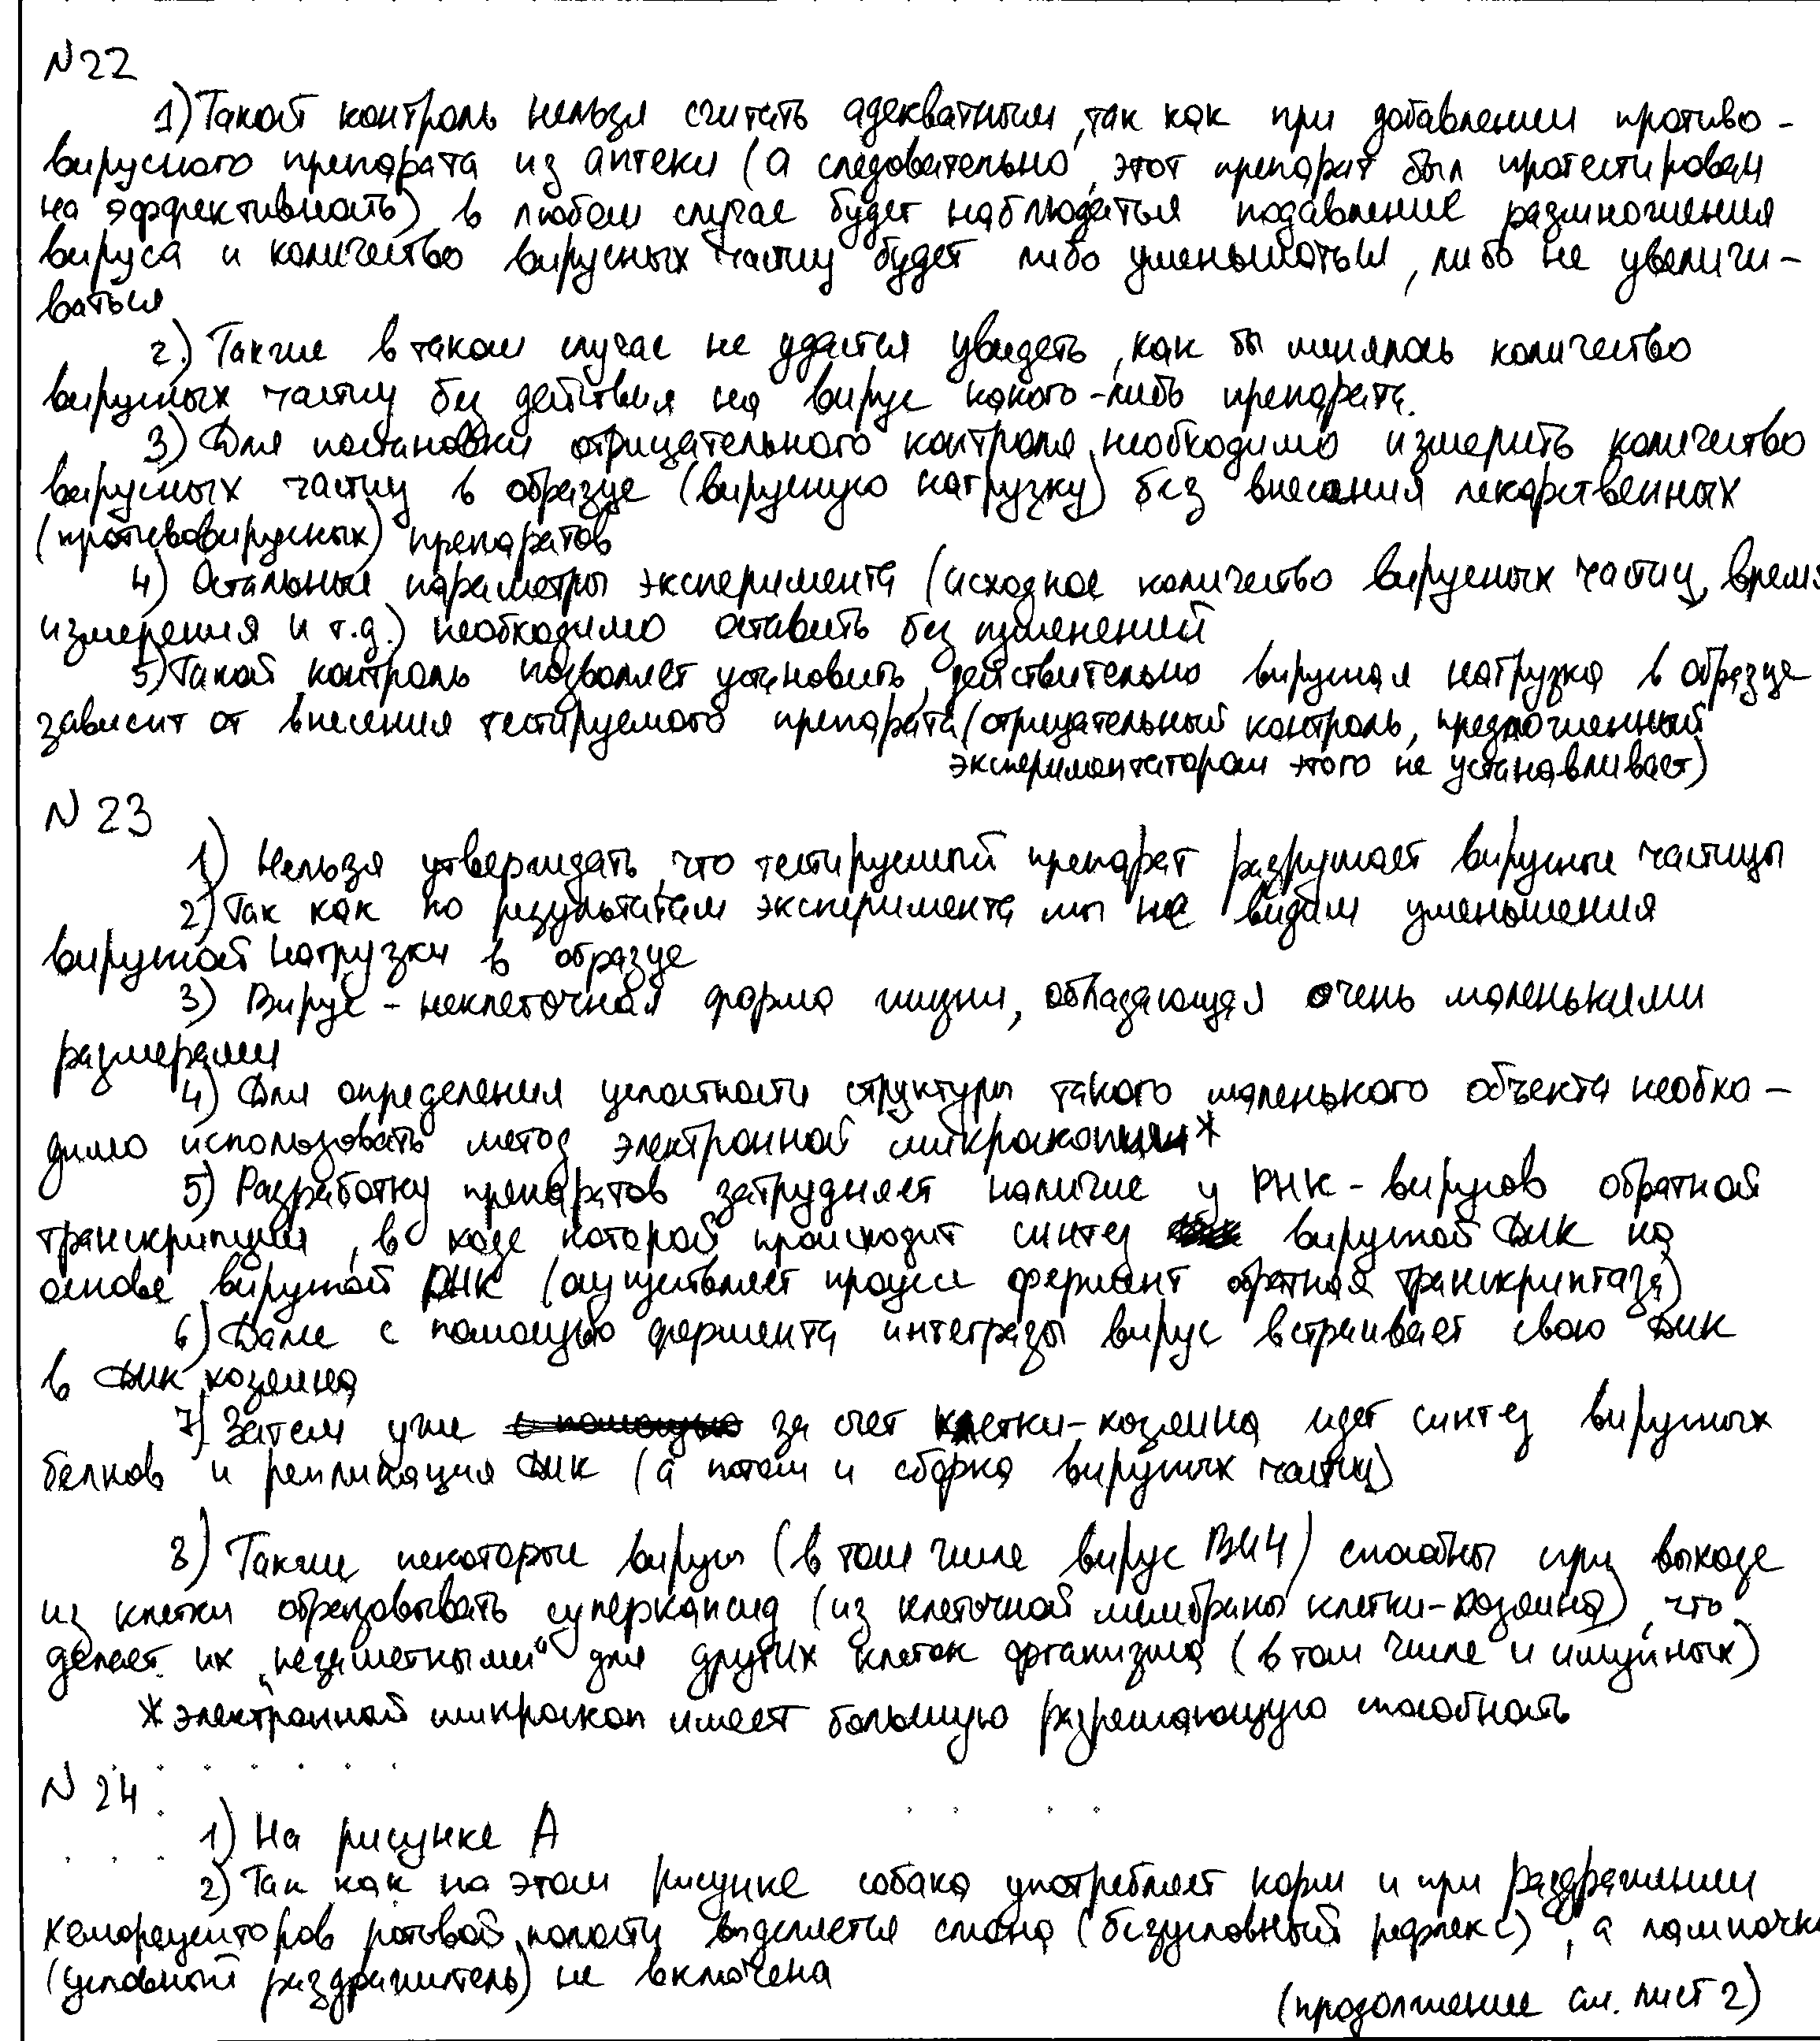 N 22
1) Такой контроль нельзя считать адекватным, так как при добавлении противо-
вирусного препарата из аптеки (а следовательно, этот препарат был протестирован
на эффективность) в любом случае будет наблюдаться подавление размножения
вируса и количество вирусных частиц будет либо уменьшаться, либо не увеличи-
ваться
2) Также в таком случае не удастся увидеть, как бы менялось количество
вирусных частиц без действия на вирус какого-либо препарата.
3) Для постановки отрицательного контроля необходимо измерить количество
вирусных частиц в образце (вирусную нагрузку) без внесения лекарственных
(противовирусных) препаратов
4) Остальные параметры эксперимента (исходное количество вирусных частиц, время
измерения и т.д.) необходимо оставить без изменений
5) Такой контроль позволяет установить, действительно вирусная нагрузка в образце
зависит от внесения тестируемого препарата (отрицательный контроль, предложенный
экспериментатором этого не устанавливает)
N 23
1) Нельзя утверждать, что тестируемый препарат разрушает вирусные частицы
2) Так как по результатам эксперимента мы не видим уменьшения
вирусной нагрузки в образце
3) Вирус - неклеточная форма жизни, обладающая очень маленькими
размерами
4) Для определения целостности структуры такого маленького объекта необхо-
димо использовать метод электронной микроскопии*
5) Разработку препаратов затрудняет наличие у РНК-вирусов обратной
транскрипции, в ходе которой происходит синтез вирусной ДНК на
основе вирусной РНК (осуществляет процесс фермент обратная транскриптаза)
6) Далее с помощью фермента интегразы вирус встраивает свою ДНК
в ДНК хозяина
7) Затем уже с помощью за счет клетки-хозяина идет синтез вирусных
белков и репликация ДНК (а потом и сборка вирусных частиц)
8) Также некоторые вирусы (в том числе вирус ВИЧ) способны при выходе
из клетки образовывать суперкапсид (из клеточной мембраны клетки-хозяина), что
делает их „незаметными“ для других клеток организма (в том числе и имунных)
* электронный микроскоп имеет большую разрешающую способность
N 24
1) На рисунке А
2) Так как на этом рисунке собака употребляет корм и при раздражении
хеморецепторов ротовой полости выделяется слюна (безусловный рефлекс), а лампочка
(условный раздражитель) не включена
(продолжение см. лист 2)